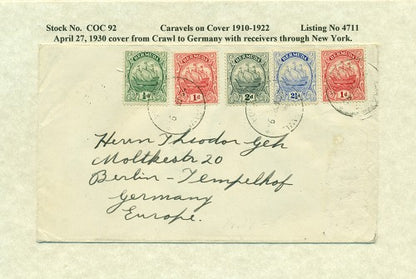 Stock No. COC 92 Caravels on Cover 1910-1922 Listing No 4711
April 27, 1930 cover from Crawl to Germany with receivers through New York.
BERMUDA BERMUDA BERMUDA BERMUDA BERMUDA
1d 1d 2d 2½d 1d
Herrn Theodor Geh
Moltkestr 20
Berlin - Tempelhof
Germany
Europe.